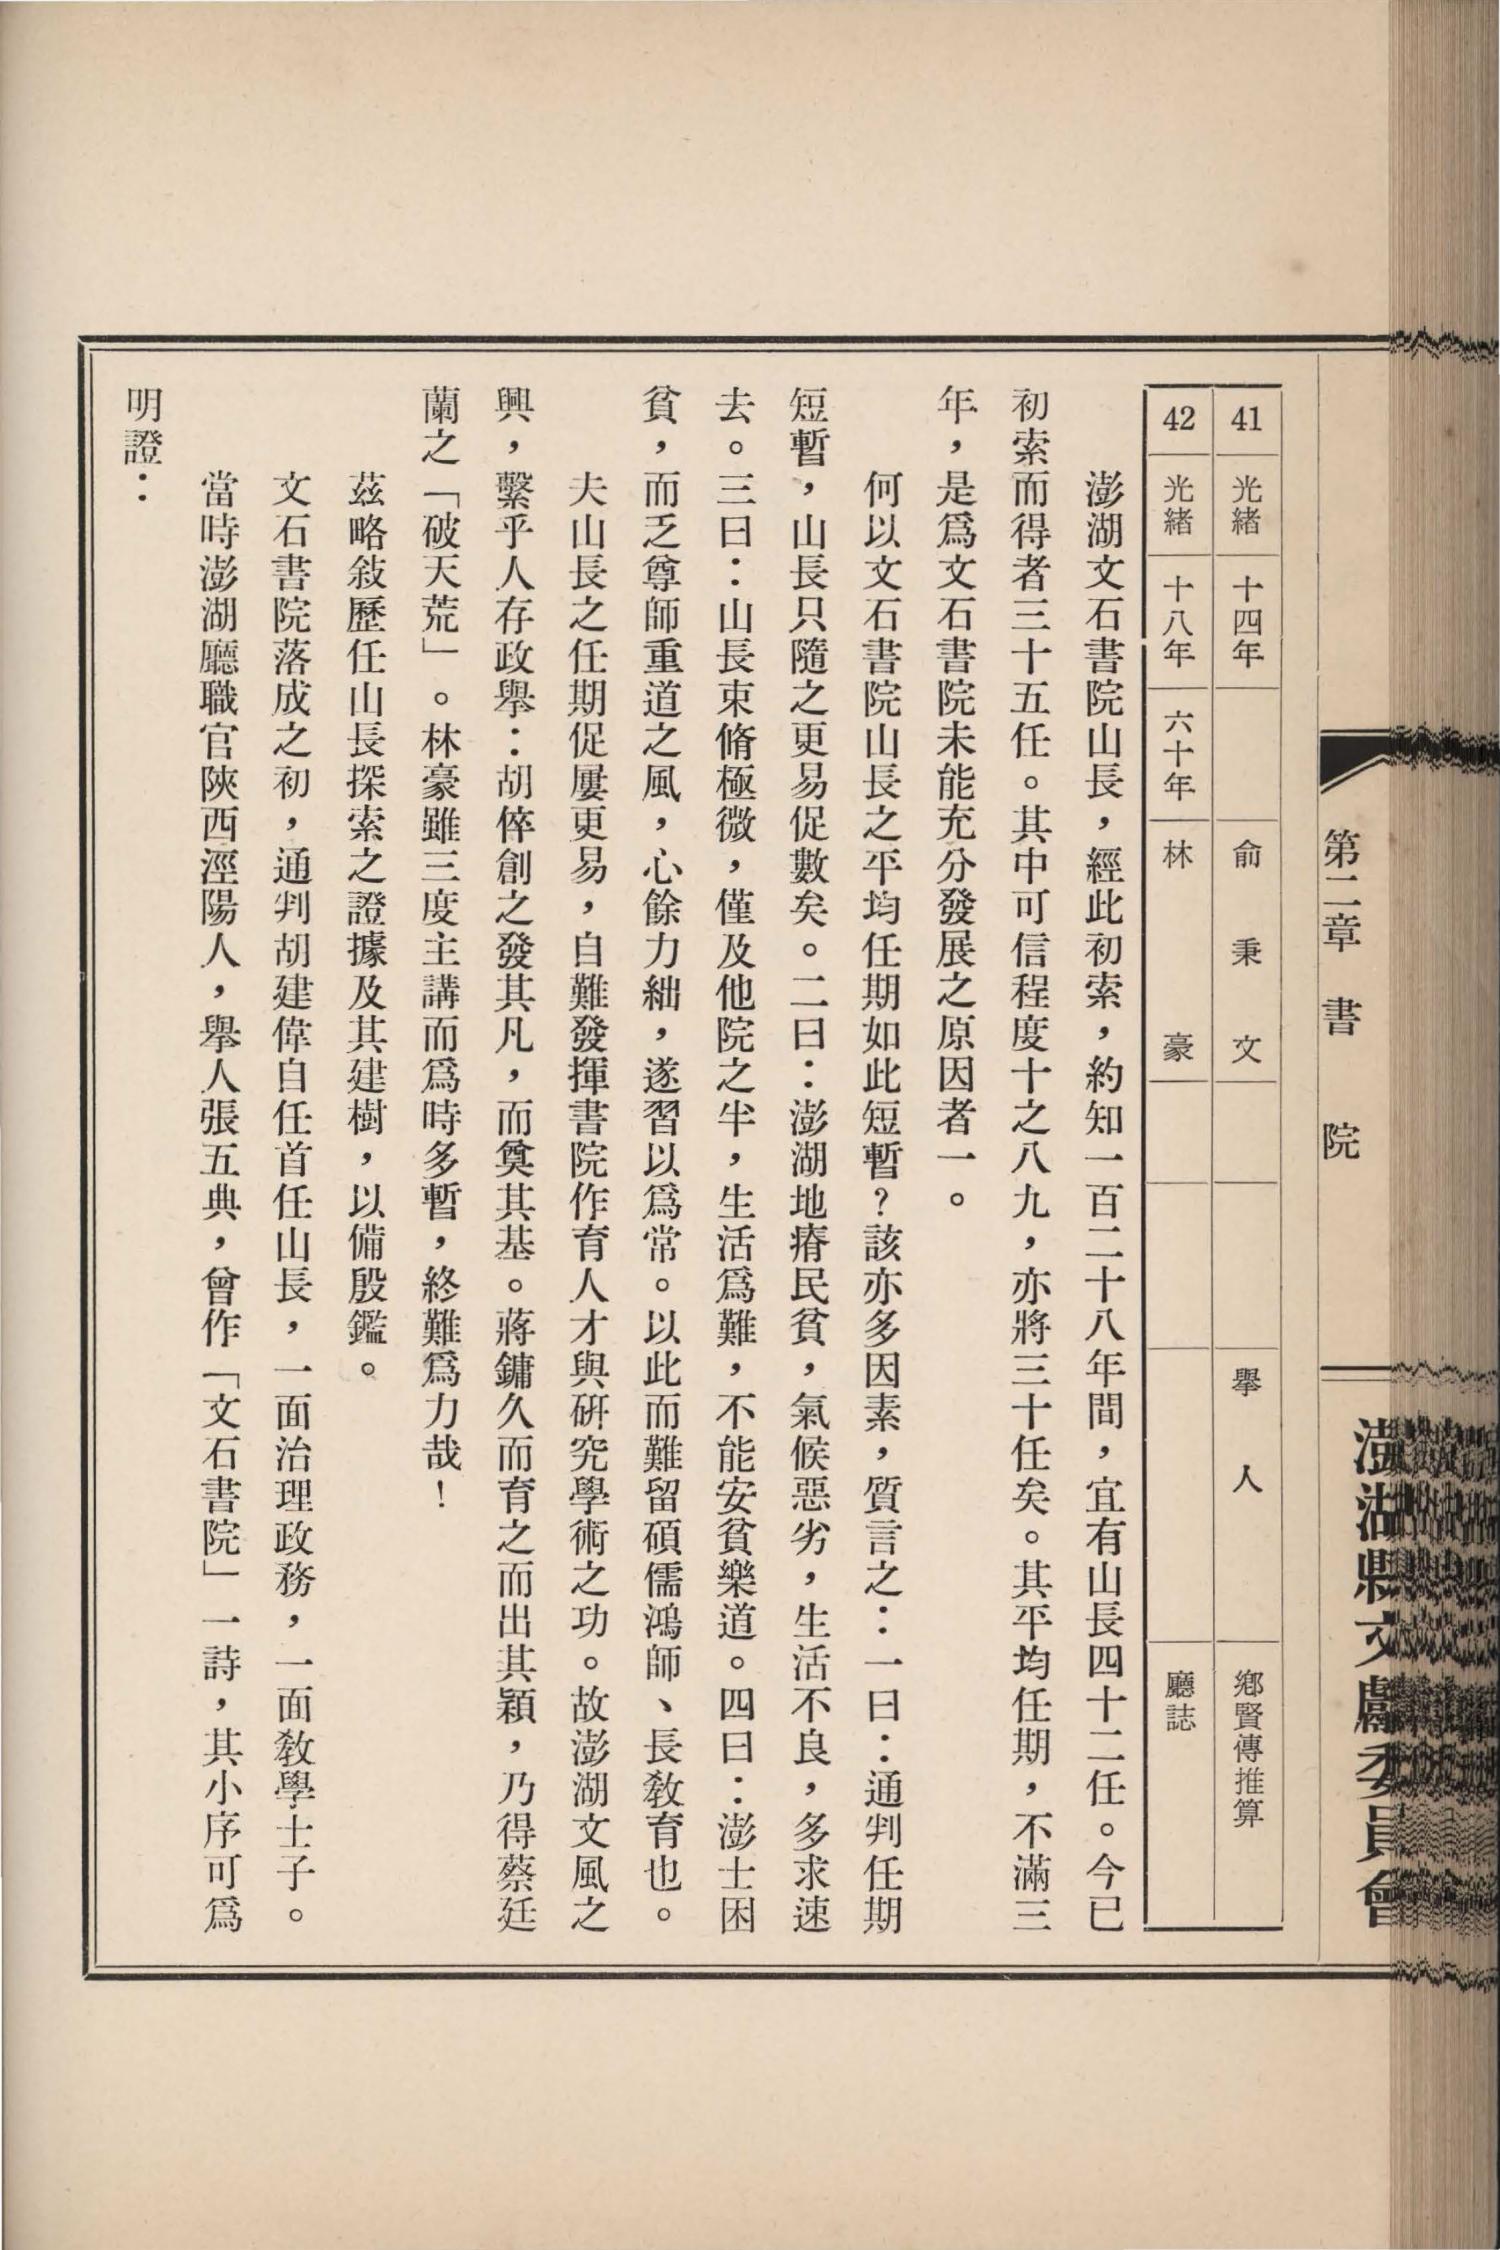 第二章　書　院
澎湖縣文獻委員會
41　光緒　十四年　俞秉文　舉人　鄉賢傳推算
42　光緒　十八年　六十年　林豪　廳誌
澎湖文石書院山長，經此初索，約知一百二十八年間，宜有山長四十二任。今已
初索而得者三十五任。其中可信程度十之八九，亦將三十任矣。其平均任期，不滿三
年，是爲文石書院未能充分發展之原因者一。
何以文石書院山長之平均任期如此短暫？該亦多因素，質言之：一曰：通判任期
短暫，山長只隨之更易促數矣。二曰：澎湖地瘠民貧，氣候惡劣，生活不良，多求速
去。三曰：山長束脩極微，僅及他院之半，生活爲難，不能安貧樂道。四曰：澎士困
貧，而乏尊師重道之風，心餘力絀，遂習以爲常。以此而難留碩儒鴻師、長教育也。
夫山長之任期促屢更易，自難發揮書院作育人才與研究學術之功。故澎湖文風之
興，繫乎人存政舉：胡倅創之發其凡，而奠其基。蔣鏞久而育之而出其穎，乃得蔡廷
蘭之「破天荒」。林豪雖三度主講而爲時多暫，終難爲力哉！
茲略敍歷任山長探索之證據及其建樹，以備殷鑑。
文石書院落成之初，通判胡建偉自任首任山長，一面治理政務，一面教學士子。
當時澎湖廳職官陝西涇陽人，舉人張五典，曾作「文石書院」一詩，其小序可爲
明證：